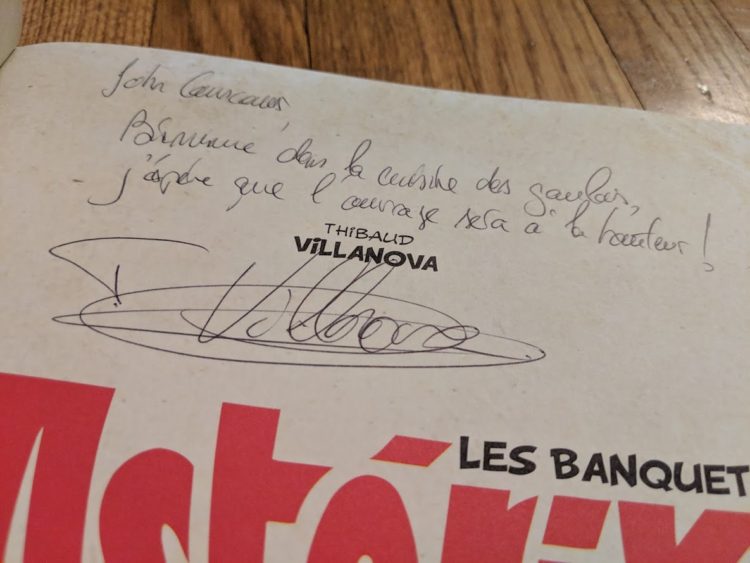 John
Bienvenue dans la cuisine des gaulois,
j'espère que l'ouvrage sera à la hauteur !
THIBAUD
VILLANOVA
T. Villanova
LES BANQUET
Astérix